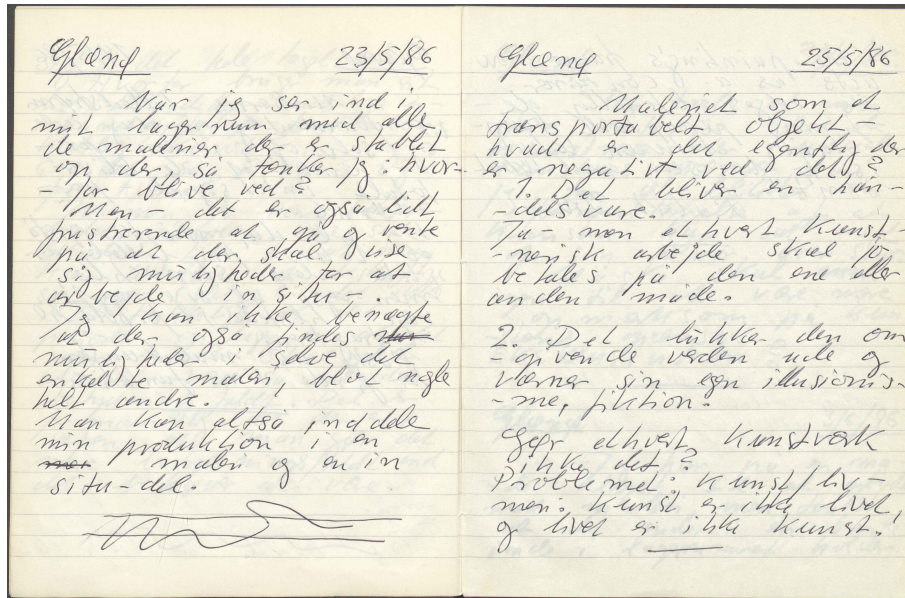 Glænø 23/5/86
Når jeg ser ind i
mit lagerrum med alle
de malerier der er stablet
op der, så tænker jeg: hvor-
- for blive ved?
Men - det er også lidt
frustrerende at gå og vente
på at der skal vise
sig muligheder for at
arbejde in situ -.
Jeg kan ikke benægte
at der også findes
muligheder i selve det
enkelte maleri, blot nogle
helt andre.
Man kan altså inddele
min produktion i en
maleri og en in
situ-del.
Glænø 25/5/86
Maleriet som et
transportabelt objekt -
hvad er det egentlig der
er negativt ved det?
1. Det bliver en han-
-delsvare.
Ja - men ethvert kunst-
-nerisk arbejde skal jo
betales på den ene eller
anden måde.
2. Det lukker den om
-givende verden ude og
værner sin egen illusionis-
-me, fiktion.
Gør ethvert kunstværk
ikke det?
Problemet: kunst/liv -
men: kunst er ikke livet,
og livet er ikke kunst!